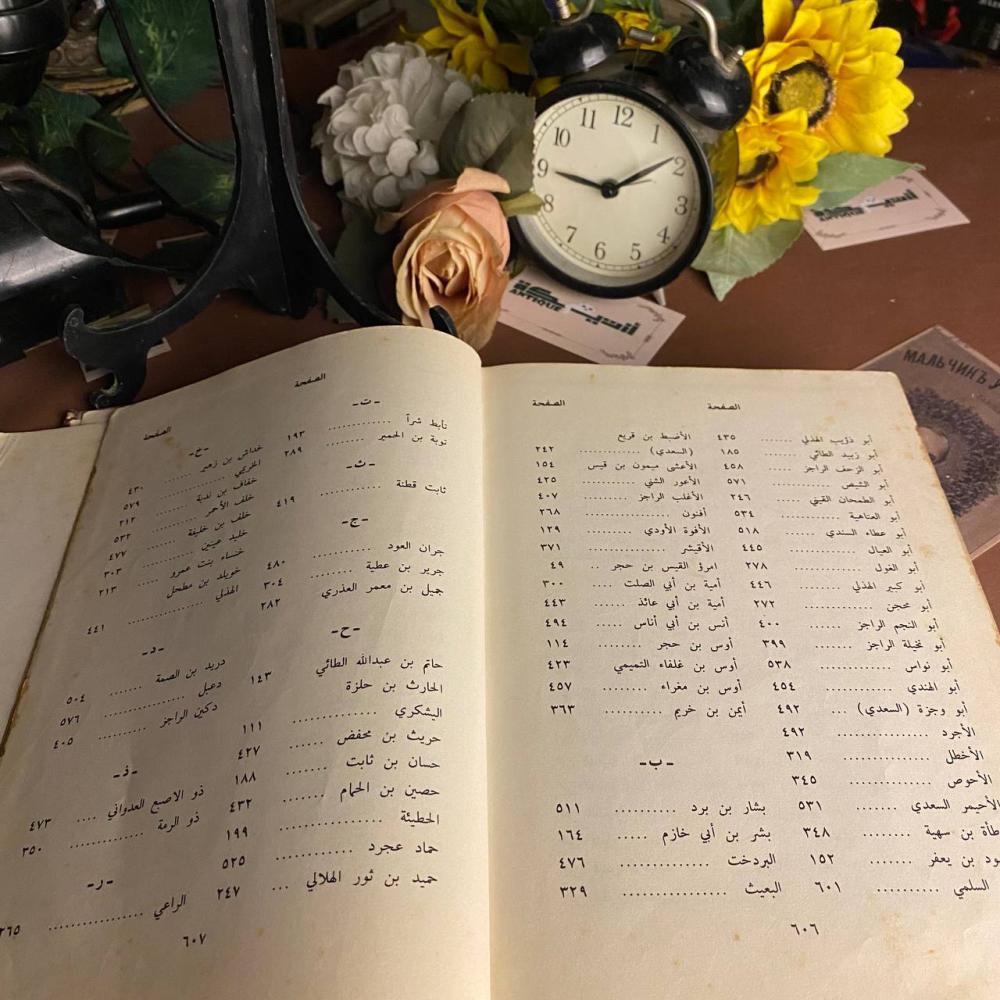 12
1
2
3
4
5
6
7
8
9
10
11
ANTIQUE
أنتيكة
ANTIQUE
МАЛЬЧИКЪ
الصفحة
أبو ذؤيب الهذلي ...... ٤٣٥
أبو زبيد الطائي ...... ١٨٥
أبو الزحف الراجز ...... ٤٥٨
أبو الشيص ............ ٥٧١
أبو الطمحان القيني ...... ٢٤٦
أبو العتاهية ............ ٥٣٤
أبو عطاء السندي ...... ٥١٨
أبو العيال ............ ٤٤٥
أبو الغول ............ ٢٧٨
أبو كبير الهذلي ...... ٤٤٦
أبو محجن ............ ٢٧٢
أبو النجم الراجز ...... ٤٠٠
أبو نخيلة الراجز ...... ٣٩٩
أبو نواس ............ ٥٣٨
أبو الهندي ............ ٤٥٤
أبو وجزة (السعدي) ... ٤٩٢
الأجرد ............... ٤٩٢
الأخطل ............... ٣١٩
الأحوص ............... ٣٤٥
الأحيمر السعدي ...... ٥٣١
طأة بن سهية ......... ٣٤٨
ود بن يعفر ......... ١٥٢
السلمي ............ ٦٠١
الصفحة
الأضبط بن قريع
(السعدي) ............ ٢٤٢
الأعشى ميمون بن قيس ١٥٤
الأعور الشني ......... ٤٢٥
الأغلب الراجز ...... ٤٠٧
أفنون ............... ٢٦٨
الأفوه الأودي ......... ١٢٩
الأقيشر ............... ٣٧١
امرؤ القيس بن حجر .. ٤٩
أمية بن أبي الصلت ... ٣٠٠
أمية بن أبي عائذ ...... ٤٤٣
أنس بن أبي أناس ..... ٤٩٤
أوس بن حجر ......... ١١٤
أوس بن غلفاء التميمي ٤٢٣
أوس بن مغراء ......... ٤٥٧
أيمن بن خريم ......... ٣٦٣
-ب-
بشار بن برد ......... ٥١١
بشر بن أبي خازم ..... ١٦٤
البردخت ............... ٤٧٦
البعيث ............... ٣٢٩
٦٠٦
الصفحة
-ت-
تأبط شرا ............ ١٩٣
توبة بن الحمير ......... ٢٨٩
-ث-
ثابت قطنة ............ ٤١٩
-ج-
جران العود ............ ٤٨٠
جرير بن عطية ......... ٣٠٤
جميل بن معمر العذري ٢٨٢
-ح-
حاتم بن عبدالله الطائي ١٤٣
الحارث بن حلزة
اليشكري ............ ١١١
حريث بن محفض ...... ٤٢٧
حسان بن ثابت ....... ١٨٨
حصين بن الحمام ....... ٤٣٢
الحطيئة ............... ١٩٩
حماد عجرد ............ ٥٢٥
حميد بن ثور الهلالي ... ٢٤٧
الصفحة
-خ-
خداش بن زهير ...... ٤٣٠
الخريمي ............ ٥٧٩
خفاف بن ندبة ......... ٢١٢
خلف الأحمر ......... ٥٣٢
خلف بن خليفة ......... ٤٧٧
خليد عينين ......... ٣٠٣
خنساء بنت عمرو ...... ٢١٣
خويلد بن مطحل
الهذلي ............ ٤٤١
-د-
دريد بن الصمة ....... ٥٠٤
دعبل ............... ٥٧٦
دكين الراجز ......... ٤٠٥
-ذ-
ذو الاصبع العدواني .... ٤٧٣
ذو الرمة ............ ٣٥٠
-ر-
الراعي ............... ٢٦٥
٦٠٧